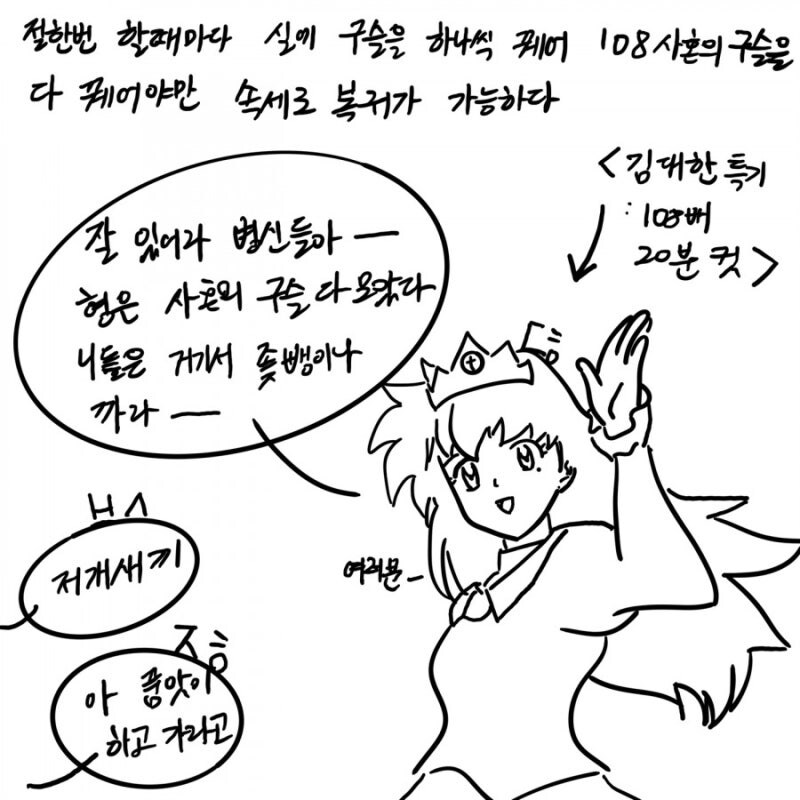 절한번 할때마다 실에 구슬을 하나씩 꿰어 108사혼의 구슬을
다 꿰어야만 속세로 복귀가 가능하다
<김대한 특기
: 108배
20분 컷>
잘 있어라 병신들아 —
형은 사혼의 구슬 다 모았다
니들은 거기서 좆뺑이나
까라 —
듬
여러분_
ㅂㅅ
저개새끼
ㅈ음
아 품앗이
하고 가라고